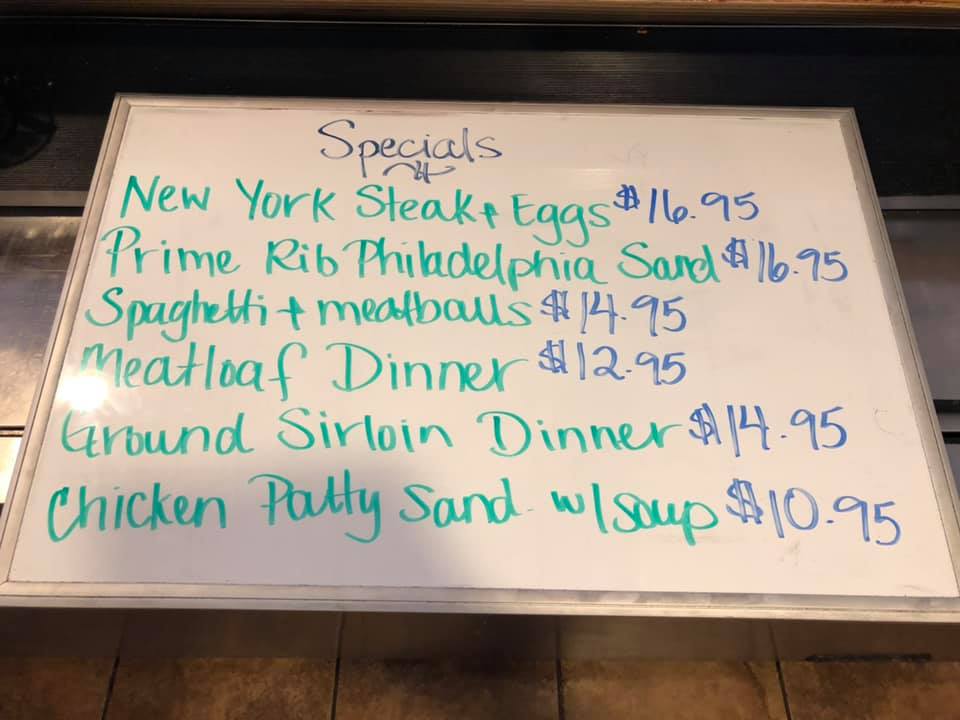 Specials
New York Steak + Eggs $16.95
Prime Rib Philadelphia Sand $16.95
Spaghetti + meatballs $14.95
Meatloaf Dinner $12.95
Ground Sirloin Dinner $14.95
Chicken Patty Sand. w/soup $10.95